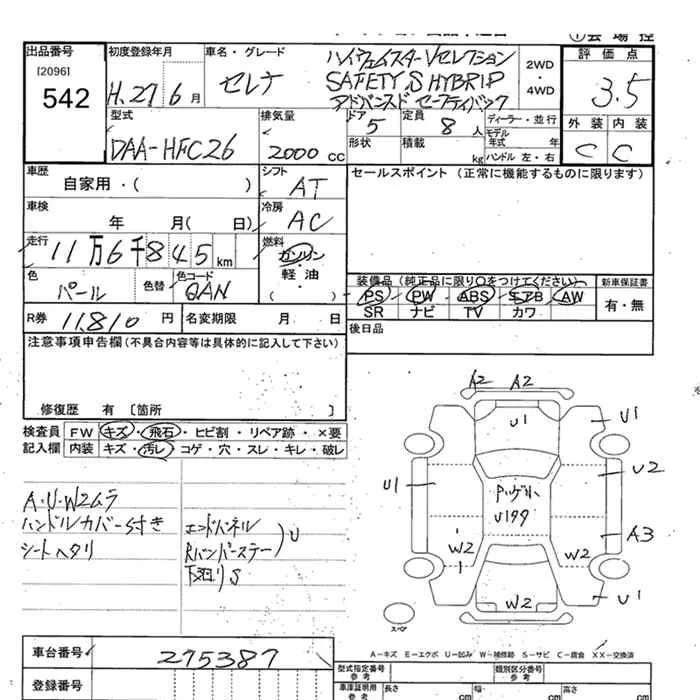 ①会場控
出品番号
[2096]
542
初度登録年月
H.27 6月
車名・グレード
セレナ
ハイウェイスターVセレクション
SAFETY S HYBRID
アドバンスド セーフティパック
2WD
・
4WD
評価点
3.5
外装 内装
C C
型式
DAA-HFC26
排気量
2000 cc
ドア
5
定員
8人
形状
積載
kg
ディーラー・並行
モデル年式 年
ハンドル 左・右
車歴
自家用・( )
シフト
AT
セールスポイント (正常に機能するものに限ります)
車検
年 月( 日)
冷房
AC
走行
11万6千845km
燃料
ガソリン
・
軽油
( )
色
パール
色替
色コード
QAN
装備品 (純正品に限り○をつけてください)
PS PW ABS エアB AW
SR ナビ TV カワ
新車保証書
有・無
R券
11,810円
名変期限 月 日
後日品
注意事項申告欄(不具合内容等は具体的に記入して下さい)
修復歴 有 〔箇所 〕
検査員
記入欄
FW キズ・飛石・ヒビ割・リペア跡・×要
内装 キズ・汚レ・コゲ・穴・スレ・キレ・破レ
A・U・W2ムラ
ハンドルカバーS付き
シートヘタリ
エンドパネル
Rバンパーステー
U
下廻りS
A2 A2
U1
U1
U1
U2
U199
A3
W2
W2
W2
U1
スペア
A-キズ E-エクボ U-凹み W-補修跡 S-サビ C-腐食 XX-交換済
車台番号
275387
登録番号
型式指定番号
参考
類別区分番号
参考
車庫証明用
参考
長さ cm
幅 cm
高さ cm